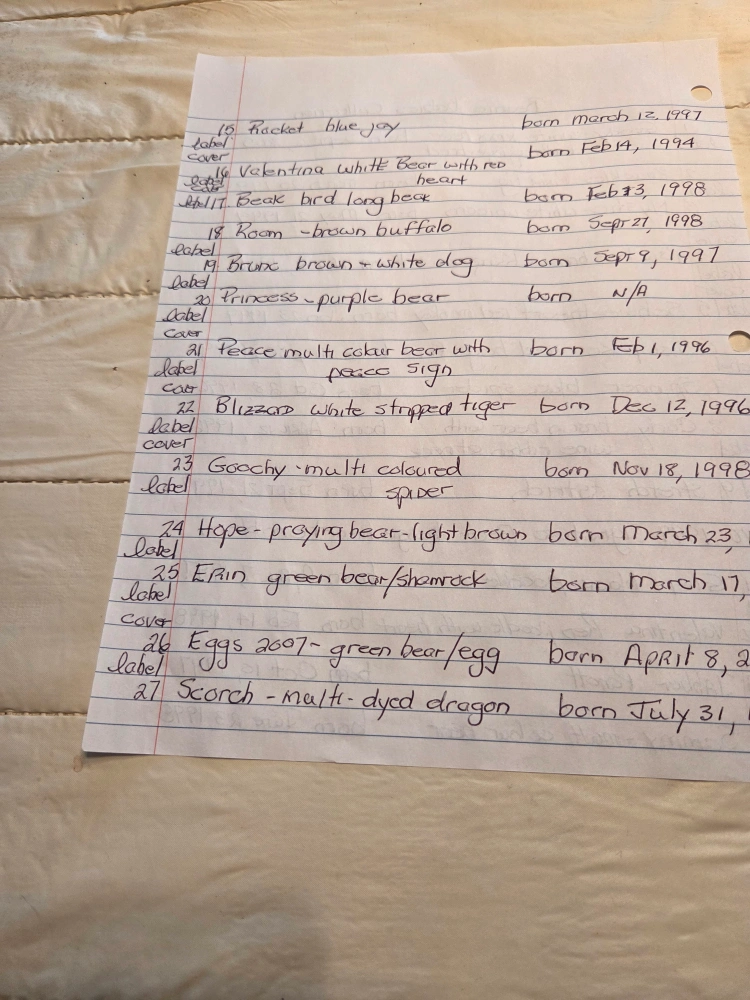 15 Rocket blue jay born march 12, 1997
label
cover born Feb 14, 1994
16 Valentina white Bear with red
label heart
17 Beak bird long beak born Feb 3, 1998
18 Roam - brown buffalo born Sept 27, 1998
label
19 Bruno brown + white dog born Sept 9, 1997
label
20 Princess - purple bear born N/A
label
cover
21 Peace multi colour bear with born Feb 1, 1996
label peace sign
cover
22 Blizzard white stripped tiger born Dec 12, 1996
label
cover
23 Goochy - multi coloured born Nov 18, 1998
label spider
24 Hope - praying bear - light brown born March 23,
label
25 Erin green bear/shamrock born March 17,
label
cover
26 Eggs 2007 - green bear/egg born April 8, 2
label
27 Scorch - multi - dyed dragon born July 31,